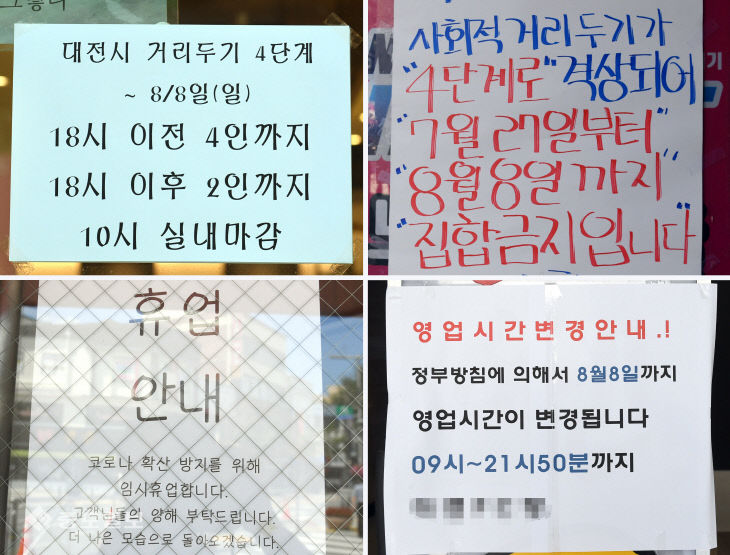 대전시 거리두기 4단계
~ 8/8일(일)
18시 이전 4인까지
18시 이후 2인까지
10시 실내마감
사회적 거리두기가
"4단계로" 격상되어
"7월 27일부터"
"8월 8일 까지"
"집합금지입니다"
휴업
안내
코로나 확산 방지를 위해
임시휴업합니다.
고객님들의 양해 부탁드립니다.
더 나은 모습으로 돌아오겠습니다.
영업시간변경안내.!
정부방침에 의해서 8월8일까지
영업시간이 변경됩니다
09시~21시50분까지